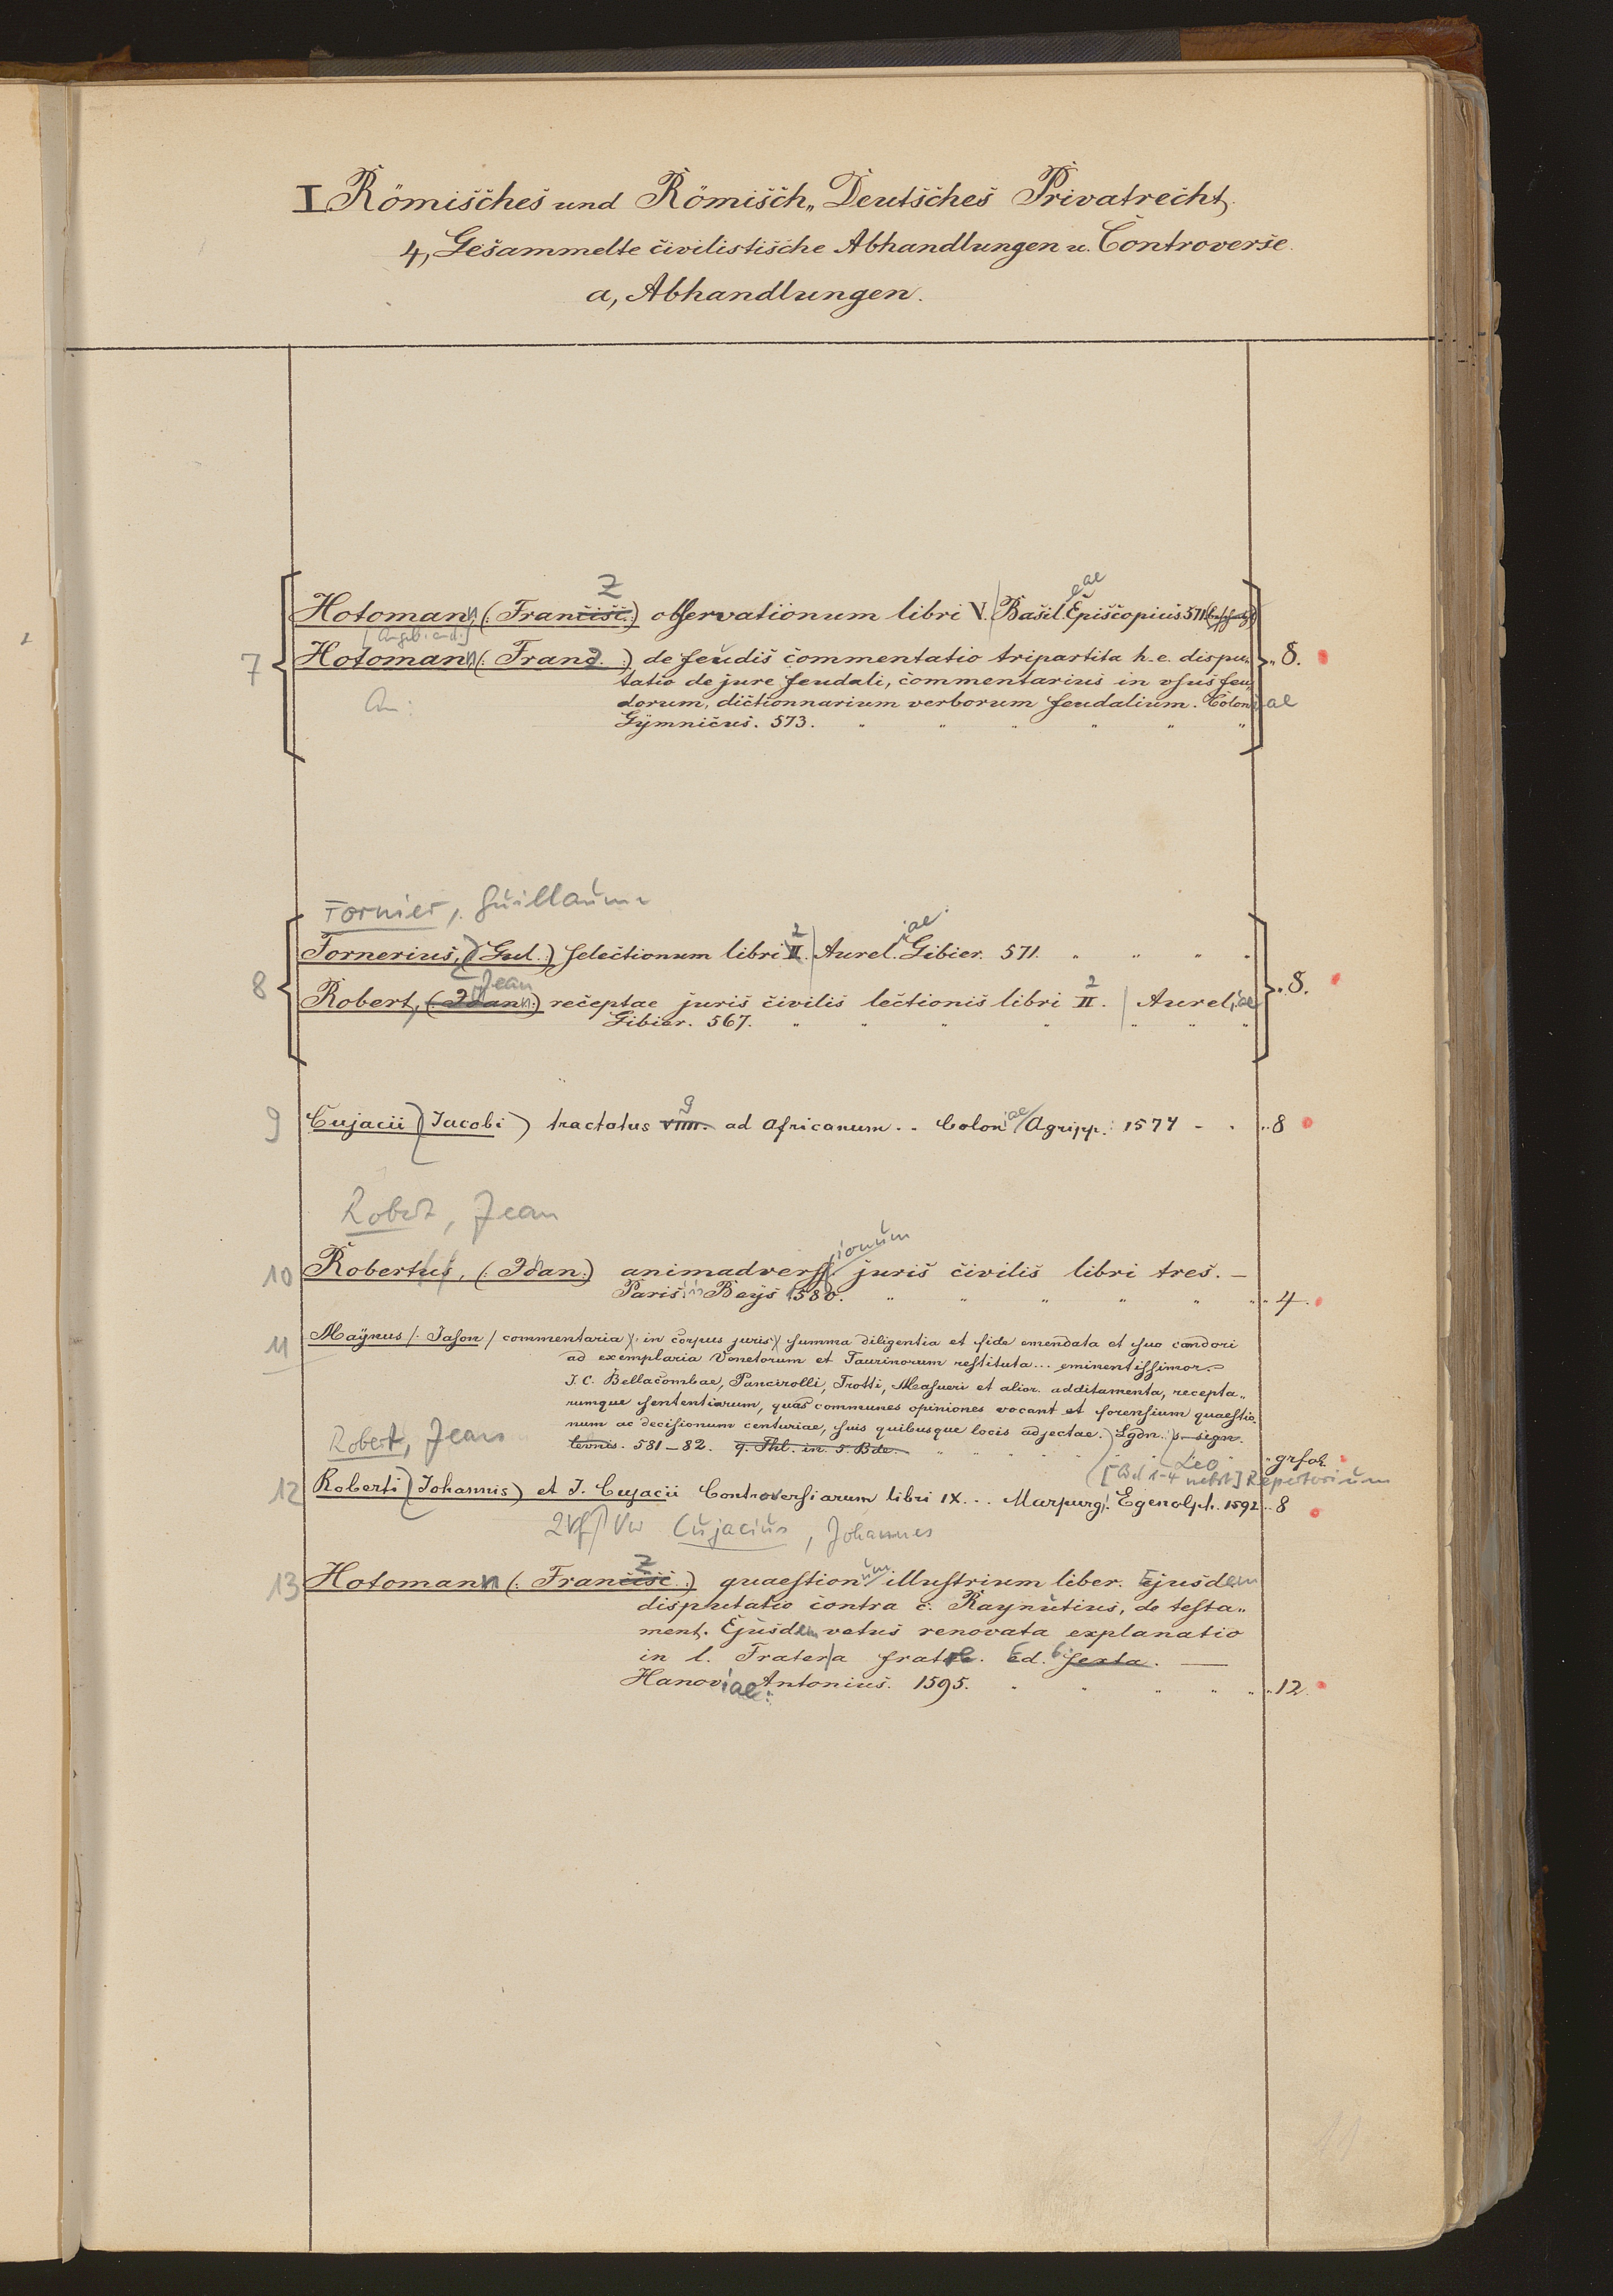 I. Römisches und Römisch„ Deutsches Privatrecht.
4, Gesammelte civilistische Abhandlungen u. Controverse.
a, Abhandlungen.
Z ae
Hotomann, (: Francisc:) observationum libri V. Basil. Episcopius. 571.
7 Hotomann (: Franc. :) de feudis commentatio tripartita h. e. dispu„ „ 8.
tatio de jure feudali, commentarius in usus feu„
An: dorum, dictionnarium verborum feudalium. Coloniae
Gymnicus. 573.
Fornier, Guillaume
2 iae
8 Fornerius, (Gul.:) selectionum libri II. Aurel. Gibier. 571. „ 8.
Jean 2
Robert, (: Joan:) receptae juris civilis lectionis libri II. Aureliae
Gibier. 567.
9 ae
9 Cujacii (Jacobi) tractatus VIIII. ad Africanum.. Colon. Agripp. 1574 - . „ 8
Robert, Jean
ionum
10 Robertus, (: Johan:) animadvers. juris civilis libri tres. —
Parisiis Beys 1580. „ 4.
11 Maÿnus /: Jason / commentaria in corpus juris summa diligentia et fide emendata et suo candori
ad exemplaria Venetorum et Taurinorum restituta... eminentissimor.
J. C. Bellacombae, Pancirolli, Trotti, Masueri et alior. additamenta, recepta„
rumque sententiarum, quas communes opiniones vocant et forensium quaestio„
num ac decisionum centuriae, suis quibusque locis adjectae. Lgdn. s. sign.
Robert, Jean leonis. 581–82. 9. Thl. in. 5. Bde. Leo „ gr fol.
[Bd 1-4 nebst] Repertorium
12 Roberti (Johannis) et J. Cujacii Controversiarum libri IX... Marpurgi. Egenolph. 1592 „ 8
2 Vf / Vw Cujacius, Johannes
Z um
13 Hotomann (: Francisc.:) quaestion illustrium liber. Ejusdem
disputatio contra c. Raynutius, de testa„
ment. Ejusdem vetus renovata explanatio
in l. Frater a fratre. Ed. 6 sexta. —
Hanoviae: Antonius. 1595. „ 12.